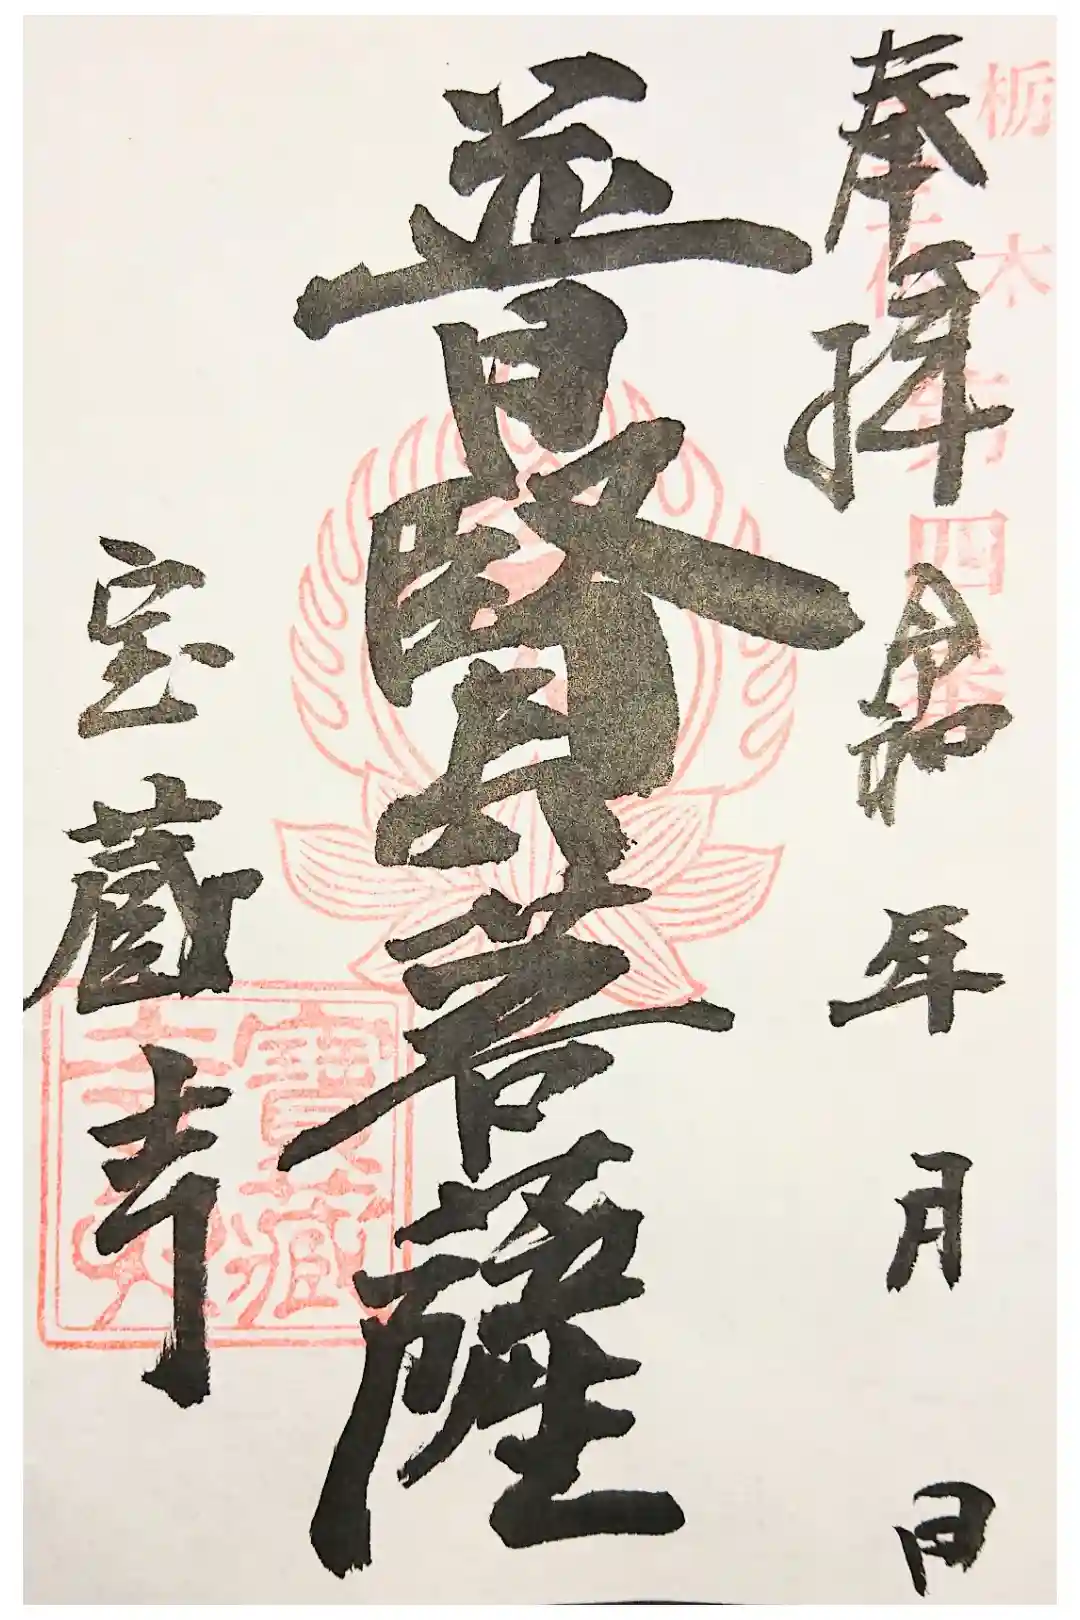 奉拝 令和 年 月 日
普賢菩薩
宝蔵寺
栃木
第四番
寶藏